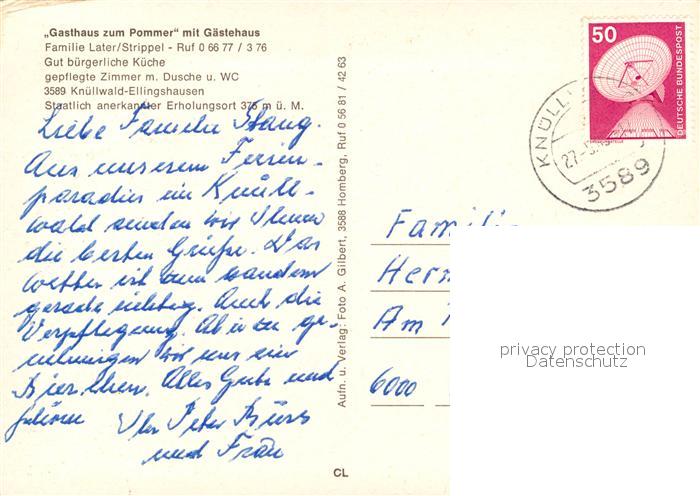 „Gasthaus zum Pommer“ mit Gästehaus
Familie Later/Strippel - Ruf 0 66 77 / 3 76
Gut bürgerliche Küche
gepflegte Zimmer m. Dusche u. WC
3589 Knüllwald-Ellingshausen
Staatlich anerkannter Erholungsort 375 m ü. M.
Liebe Familie Stang.
Aus unserem Ferien-
paradies im Knüll-
wald senden wir Ihnen
die besten Grüße. Das
Wetter ist zum wandern
gerade richtig. Auch die
Verpflegung. Ab und zu ge-
nehmigen wir uns ein
Bierchen. Alles Gute und
Ihr Peter
und Frau
Aufn. u. Verlag: Foto A. Gilbert, 3588 Homberg, Ruf 0 56 81 / 42 63
CL
50
DEUTSCHE BUNDESPOST
3589
Familie
Her
Am
6000
privacy protection
Datenschutz